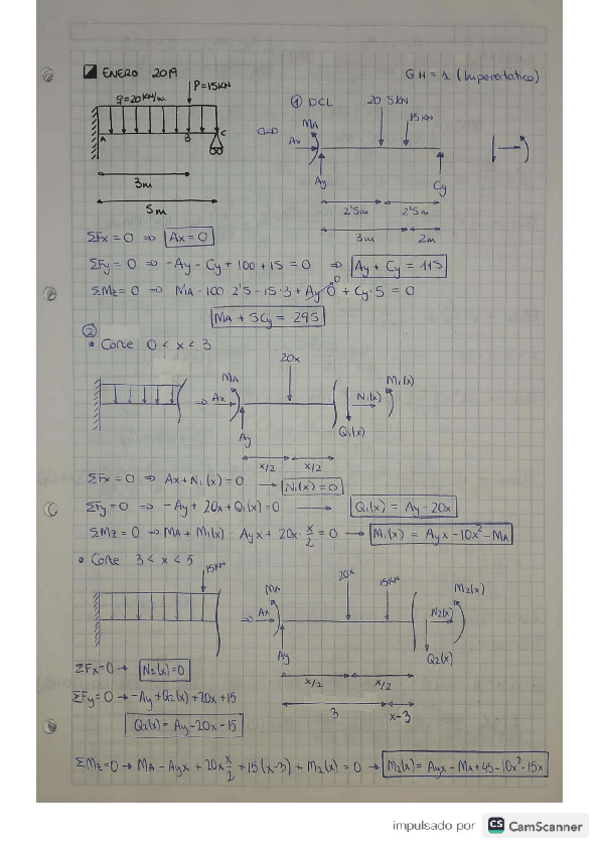 ENERO 2019
GH = 1 (hiperestático)
P=15KN
q=20KN/m
A
B
C
3m
5m
① DCL
20·5KN
15KN
MA
Ax
Ay
Cy
2'5m
2'5m
3m
2m
ΣFx = 0 => Ax=0
ΣFy = 0 => -Ay - Cy + 100 + 15 = 0 => Ay + Cy = 115
ΣMz = 0 => MA - 100·2'5 - 15·3 + Ay·0 + Cy·5 = 0
0
MA + 5Cy = 295
②
• Corte 0 < x < 3
20x
MA
M1(x)
Ax
N1(x)
Ay
Q1(x)
x/2
x/2
ΣFx = 0 => Ax + N1(x) = 0 → N1(x) = 0
ΣFy = 0 => -Ay + 20x + Q1(x) = 0 → Q1(x) = Ay - 20x
ΣMz = 0 → MA + M1(x) - Ayx + 20x·x/2 = 0 → M1(x) = Ayx - 10x² - MA
• Corte 3 < x < 5
15KN
MA
20x
15KN
M2(x)
Ax
N2(x)
Ay
Q2(x)
x/2
x/2
3
x-3
ΣFx=0 → N2(x)=0
ΣFy = 0 → -Ay + Q2(x) + 20x + 15
Q2(x) = Ay - 20x - 15
ΣMz=0 → MA - Ayx + 20x x/2 + 15(x-3) + M2(x) = 0 → M2(x) = Ayx - MA + 45 - 10x² - 15x
impulsado por CS CamScanner